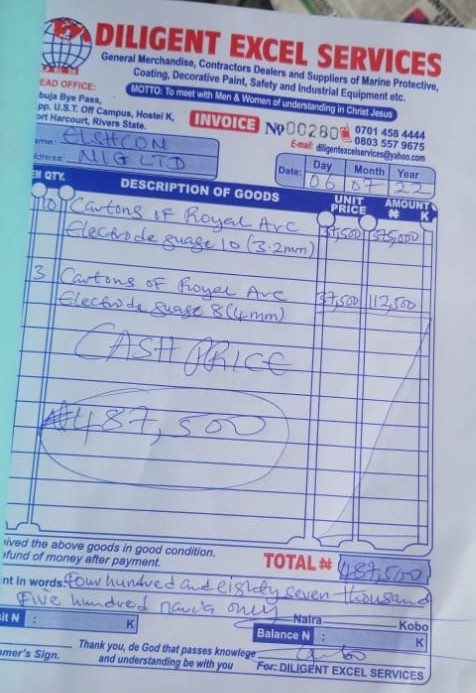 DILIGENT EXCEL SERVICES
General Merchandise, Contractors Dealers and Suppliers of Marine Protective,
Coating, Decorative Paint, Safety and Industrial Equipment etc.
MOTTO: To meet with Men & Women of understanding in Christ Jesus
EAD OFFICE:
buja Bye Pass,
pp. U.S.T. Off Campus, Hostel K,
ort Harcourt, Rivers State.
INVOICE No 00280
0701 458 4444
0803 557 9675
E-mail: diligentexcelservices@yahoo.com
ame: ELSHCON
ddress: NIG LTD
Date: Day Month Year
06 07 22
QTY. DESCRIPTION OF GOODS UNIT PRICE AMOUNT
₦ K
10 Cartons of Royal Arc
Electrode guage 10 (3.2mm) 37,500 375,000
3 Cartons of Royal Arc
Electrode guage 8 (4mm) 37,500 112,500
CASH PRICE
₦487,500
ived the above goods in good condition.
efund of money after payment.
TOTAL ₦ 487,500
nt in words: Four hundred and eighty seven thousand
Five hundred naira only
Naira Kobo
sit N : K
Balance N : K
omer's Sign.
Thank you, de God that passes knowlege
and understanding be with you
For: DILIGENT EXCEL SERVICES